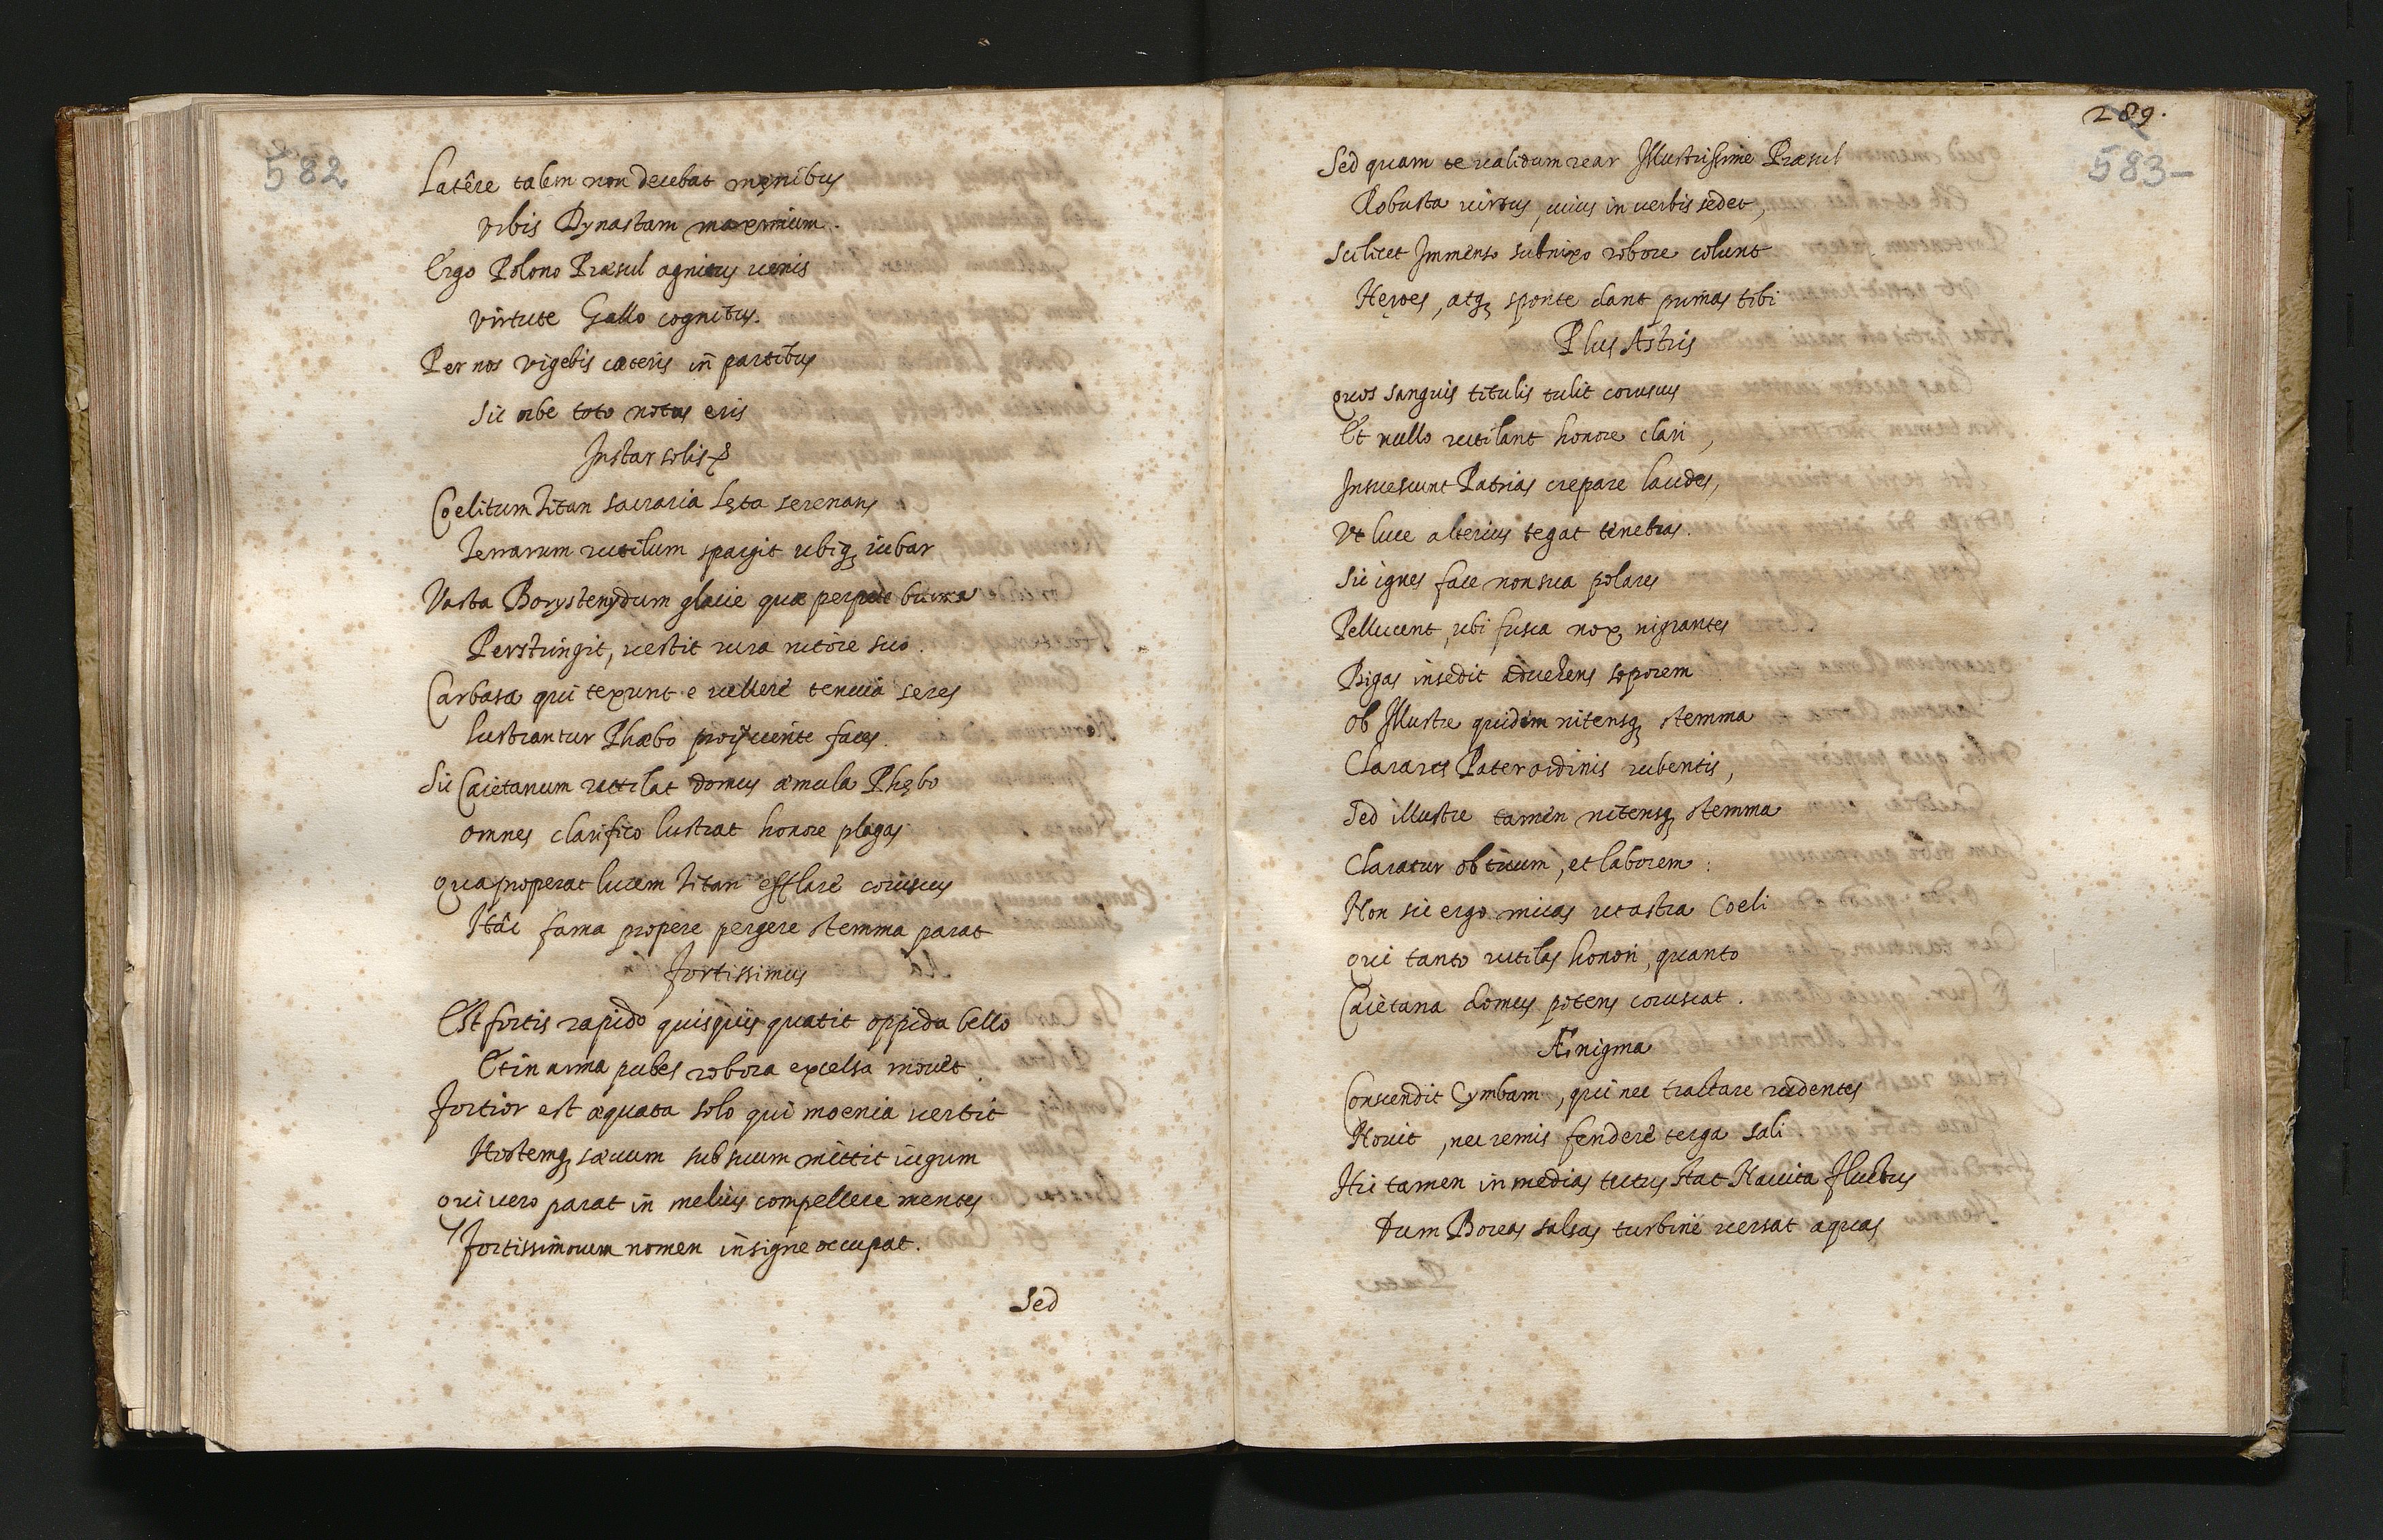 582
Latêre talem non decebat męnibus
Vrbis Dynastam maxmium.
Ergo Polono Præsul agnitus venis
Virtute Gallo cognitus.
Per nos vigebis cæteris in partibus
Sic orbe toto notus eris
Instar solis
Coelitum Titan sacraria lęta serenans
Terrarum rutilum spargit ubiq; iubar
Vasta Borystenydum glacie quæ perpete bruma
Perstringit, vestit rura nitore suo.
Carbasa qui texunt e vellere tenuia seres
lustrantur Phæbo proijciente faces.
Sic Caietanum rutilat domus æmula Phębo
omnes clarifico lustrat honore plagas
Qua properat lucem Titan efflare coruscus
Hâc fama propere pergere stemma parat
Fortissimus
Est fortis rapido quisquis quatit oppida bello
Et in arma pubes robora excelsa mouet
Fortior est æquata solo qui moenia vertit
Hostemq; sæuum sub suum mittit iugum
Qui vero parat in melius compellere mentes
Fortissimorum nomen insigne occupat.
Sed
289.
583
Sed quam te validum rear Illustrissime Præsul
Robusta virtus, cuius in verbis sedet,
Scilicet Immenso subnixo robore colunt
Heroes, atq; sponte dant primas tibi
Plus Astris
Quos sanguis titulis tulit coruscus
Et nullo rutilant honore clari,
Insuescunt Patrias crepare laudes,
Vt luce alterius tegat tenebras.
Sic ignes face non sua polares
Pellucent, ubi fusca nox nigrantes
Bigas insedit aduehens soporem
Ob Illustre quidem nitensq; stemma
Clarares Pater ordinis rubentis,
Sed illustre tamen nitensq; stemma
Claratur ob tuum, et laborem:
Non sic ergo micas ut astra Coeli
Qui tanto rutilas honori, quanto
Caietana domus potens coruscat.
Ænigma
Conscendit Cymbam, qui nec tractare rudentes
Nouit, nec remis fendere terga sali
Hic tamen in medias tutus stat Nauita fluctus
Dum Boreas salsas turbine versat aquas